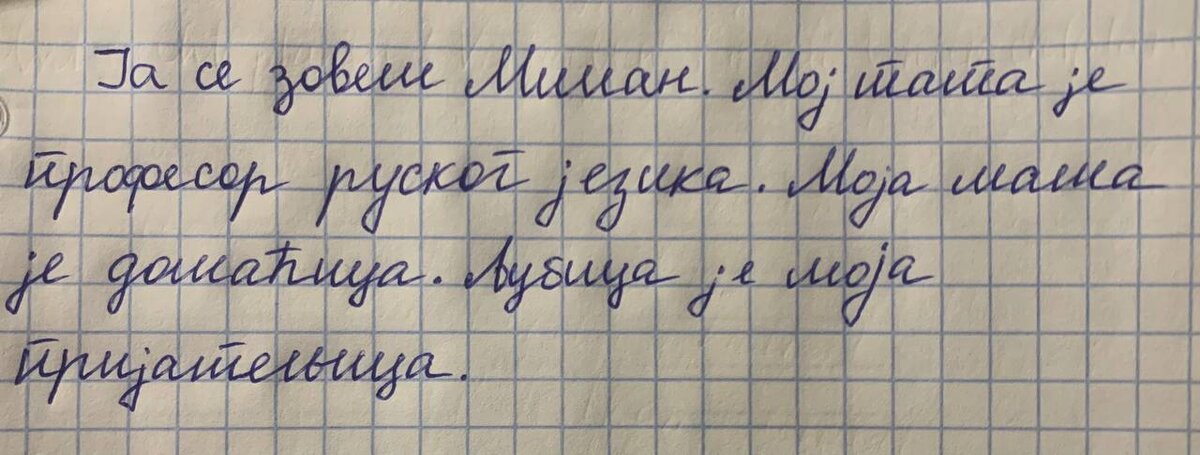 Ја се зовем Милан. Мој тата је
професор руског језика. Моја мама
је домаћица. Љубица је моја
пријатељица.